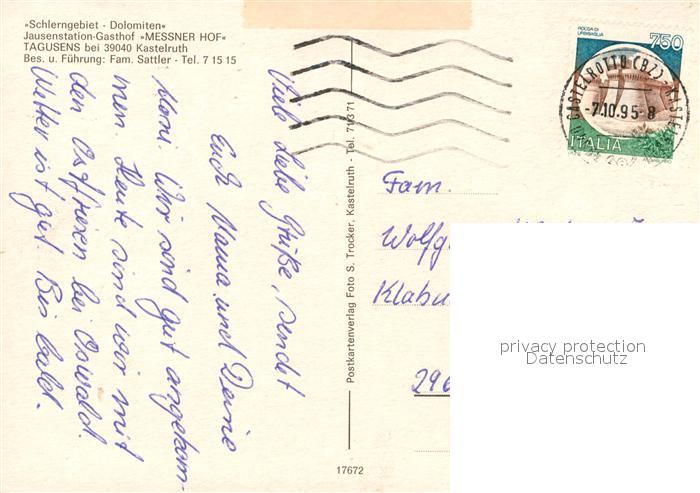 »Schlerngebiet - Dolomiten«
Jausenstation-Gasthof »MESSNER HOF«
TAGUSENS bei 39040 Kastelruth
Bes. u. Führung: Fam. Sattler - Tel. 7 15 15
Viele liebe Grüße, sendet
Euch Mama und Deine
Moni. Wir sind gut angekom-
men. Heute sind wir mit
den Ostfriesen bei Oswald.
Wetter ist gut. Bis bald.
Postkartenverlag Foto S. Trocker, Kastelruth - Tel. 71 3 71
17672
ROCCA DI
URBISAGLIA
750
ITALIA
CASTELROTTO (BZ)
-7.10.95-8
Fam.
Wolfg
Klabu
296
privacy protection
Datenschutz